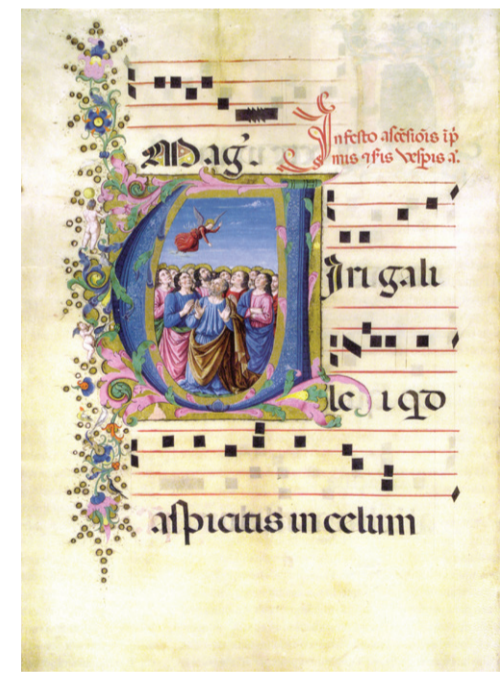 Mag.
In festo ascēsiōis ip̄
mis ⁊ sīs vesp̄is a.
Viri gali
lei qd
aspicitis in celum